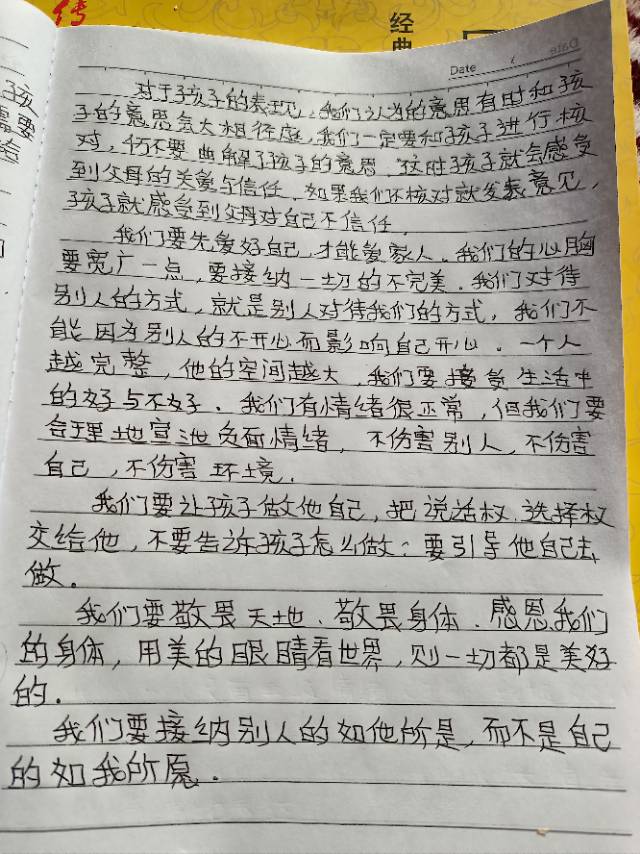 传
经
典
Date
对于孩子的表现，我们认为的意思有时和孩
子的意思会大相径庭，我们一定要和孩子进行核
对，仍不要曲解了孩子的意思，这时孩子就会感受
到父母的关爱与信任，如果我们不核对就发表意见，
孩子就感受到父母对自己不信任．
我们要先爱好自己，才能爱家人．我们的心胸
要宽广一点，要接纳一切的不完美．我们对待
别人的方式，就是别人对待我们的方式，我们不
能因为别人的不开心而影响自己开心．一个人
越完整，他的空间越大，我们要接受生活中
的好与不好．我们有情绪很正常，但我们要
合理地宣泄负面情绪，不伤害别人，不伤害
自己，不伤害环境．
我们要让孩子做他自己，把说话权、选择权
交给他，不要告诉孩子怎么做：要引导他自己去
做．
我们要敬畏天地、敬畏身体．感恩我们
的身体，用美的眼睛看世界，则一切都是美好
的．
我们要接纳别人的如他所是，而不是自己
的如我所愿．